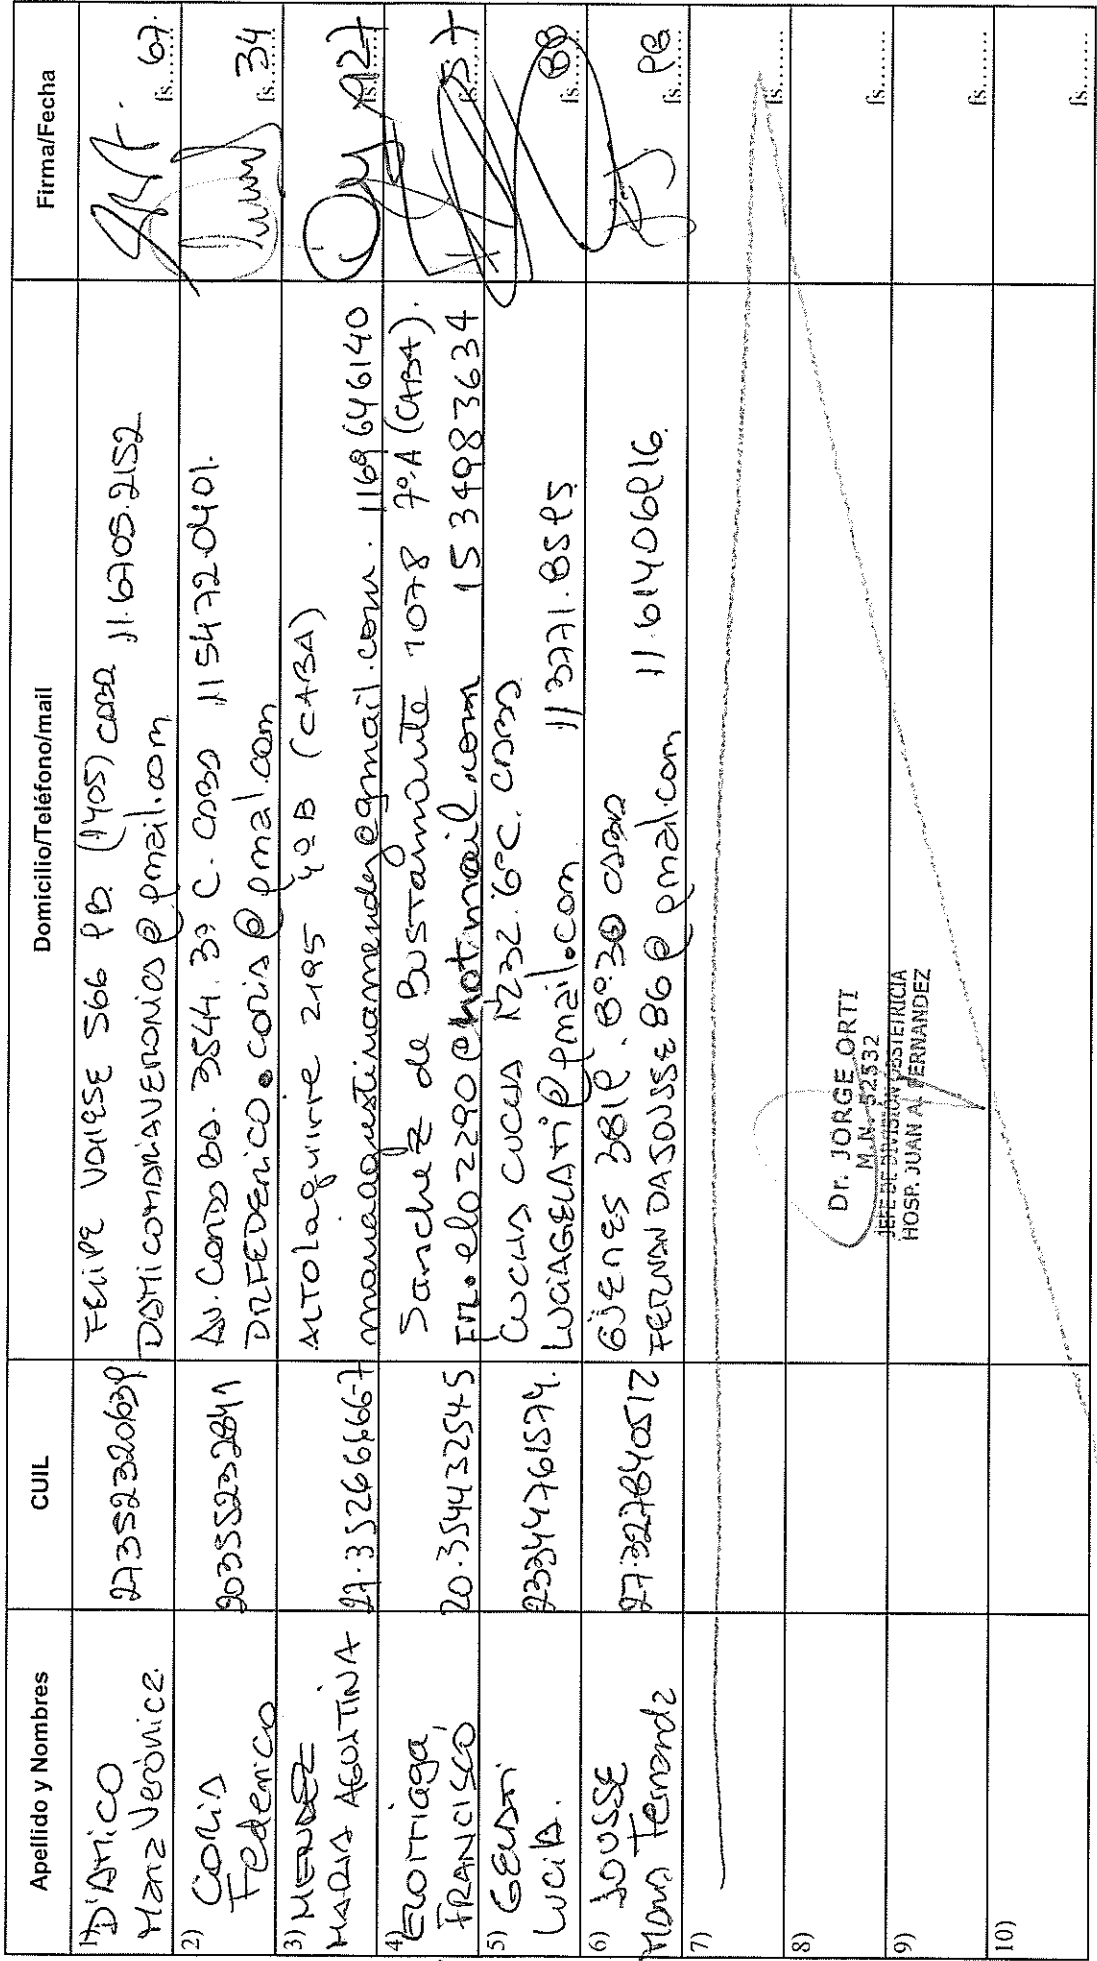 Apellido y Nombres
CUIL
Domicilio/Teléfono/mail
Firma/Fecha
1) D'AMICO
Maria Verónica.
27352320639
FELIPE
566 PB. (1405) CABA 11.6705.2152
fs...... 67.
2) CORIA
Federico
20355232841
AV.
3544. 3º C. CABA 1154720401.
DRFEDERICO.CORIA@gmail.com
fs...... 34
3) MENDEZ
MARIA AGUSTINA
27.35266666-7
ALTOLaguirre 2195 4º B (CABA)
mariaagustinamendez@gmail.com. 1169646140
fs......
4) ELORRiaga,
FRANCISCO
20.35443254-5
Sanchez de BUSTamante 1078 7º A (CABA).
FR.elo2290@hotmail.com 1534983634
fs...... 57
5)
LUCIA.
23344761574.
6ºC. CABA
fs...... 88
6) JOUSSE
Maria Fernanda
27.327840512
GÜEMES
CABA
FERNANDAJOUSSE86@gmail.com
fs......
7)
fs......
8)
Dr. JORGE ORTI
M.N. 52532
JEFE DE DIVISION OBSTETRICIA
HOSP. JUAN A. FERNANDEZ
fs......
9)
fs......
10)
fs......